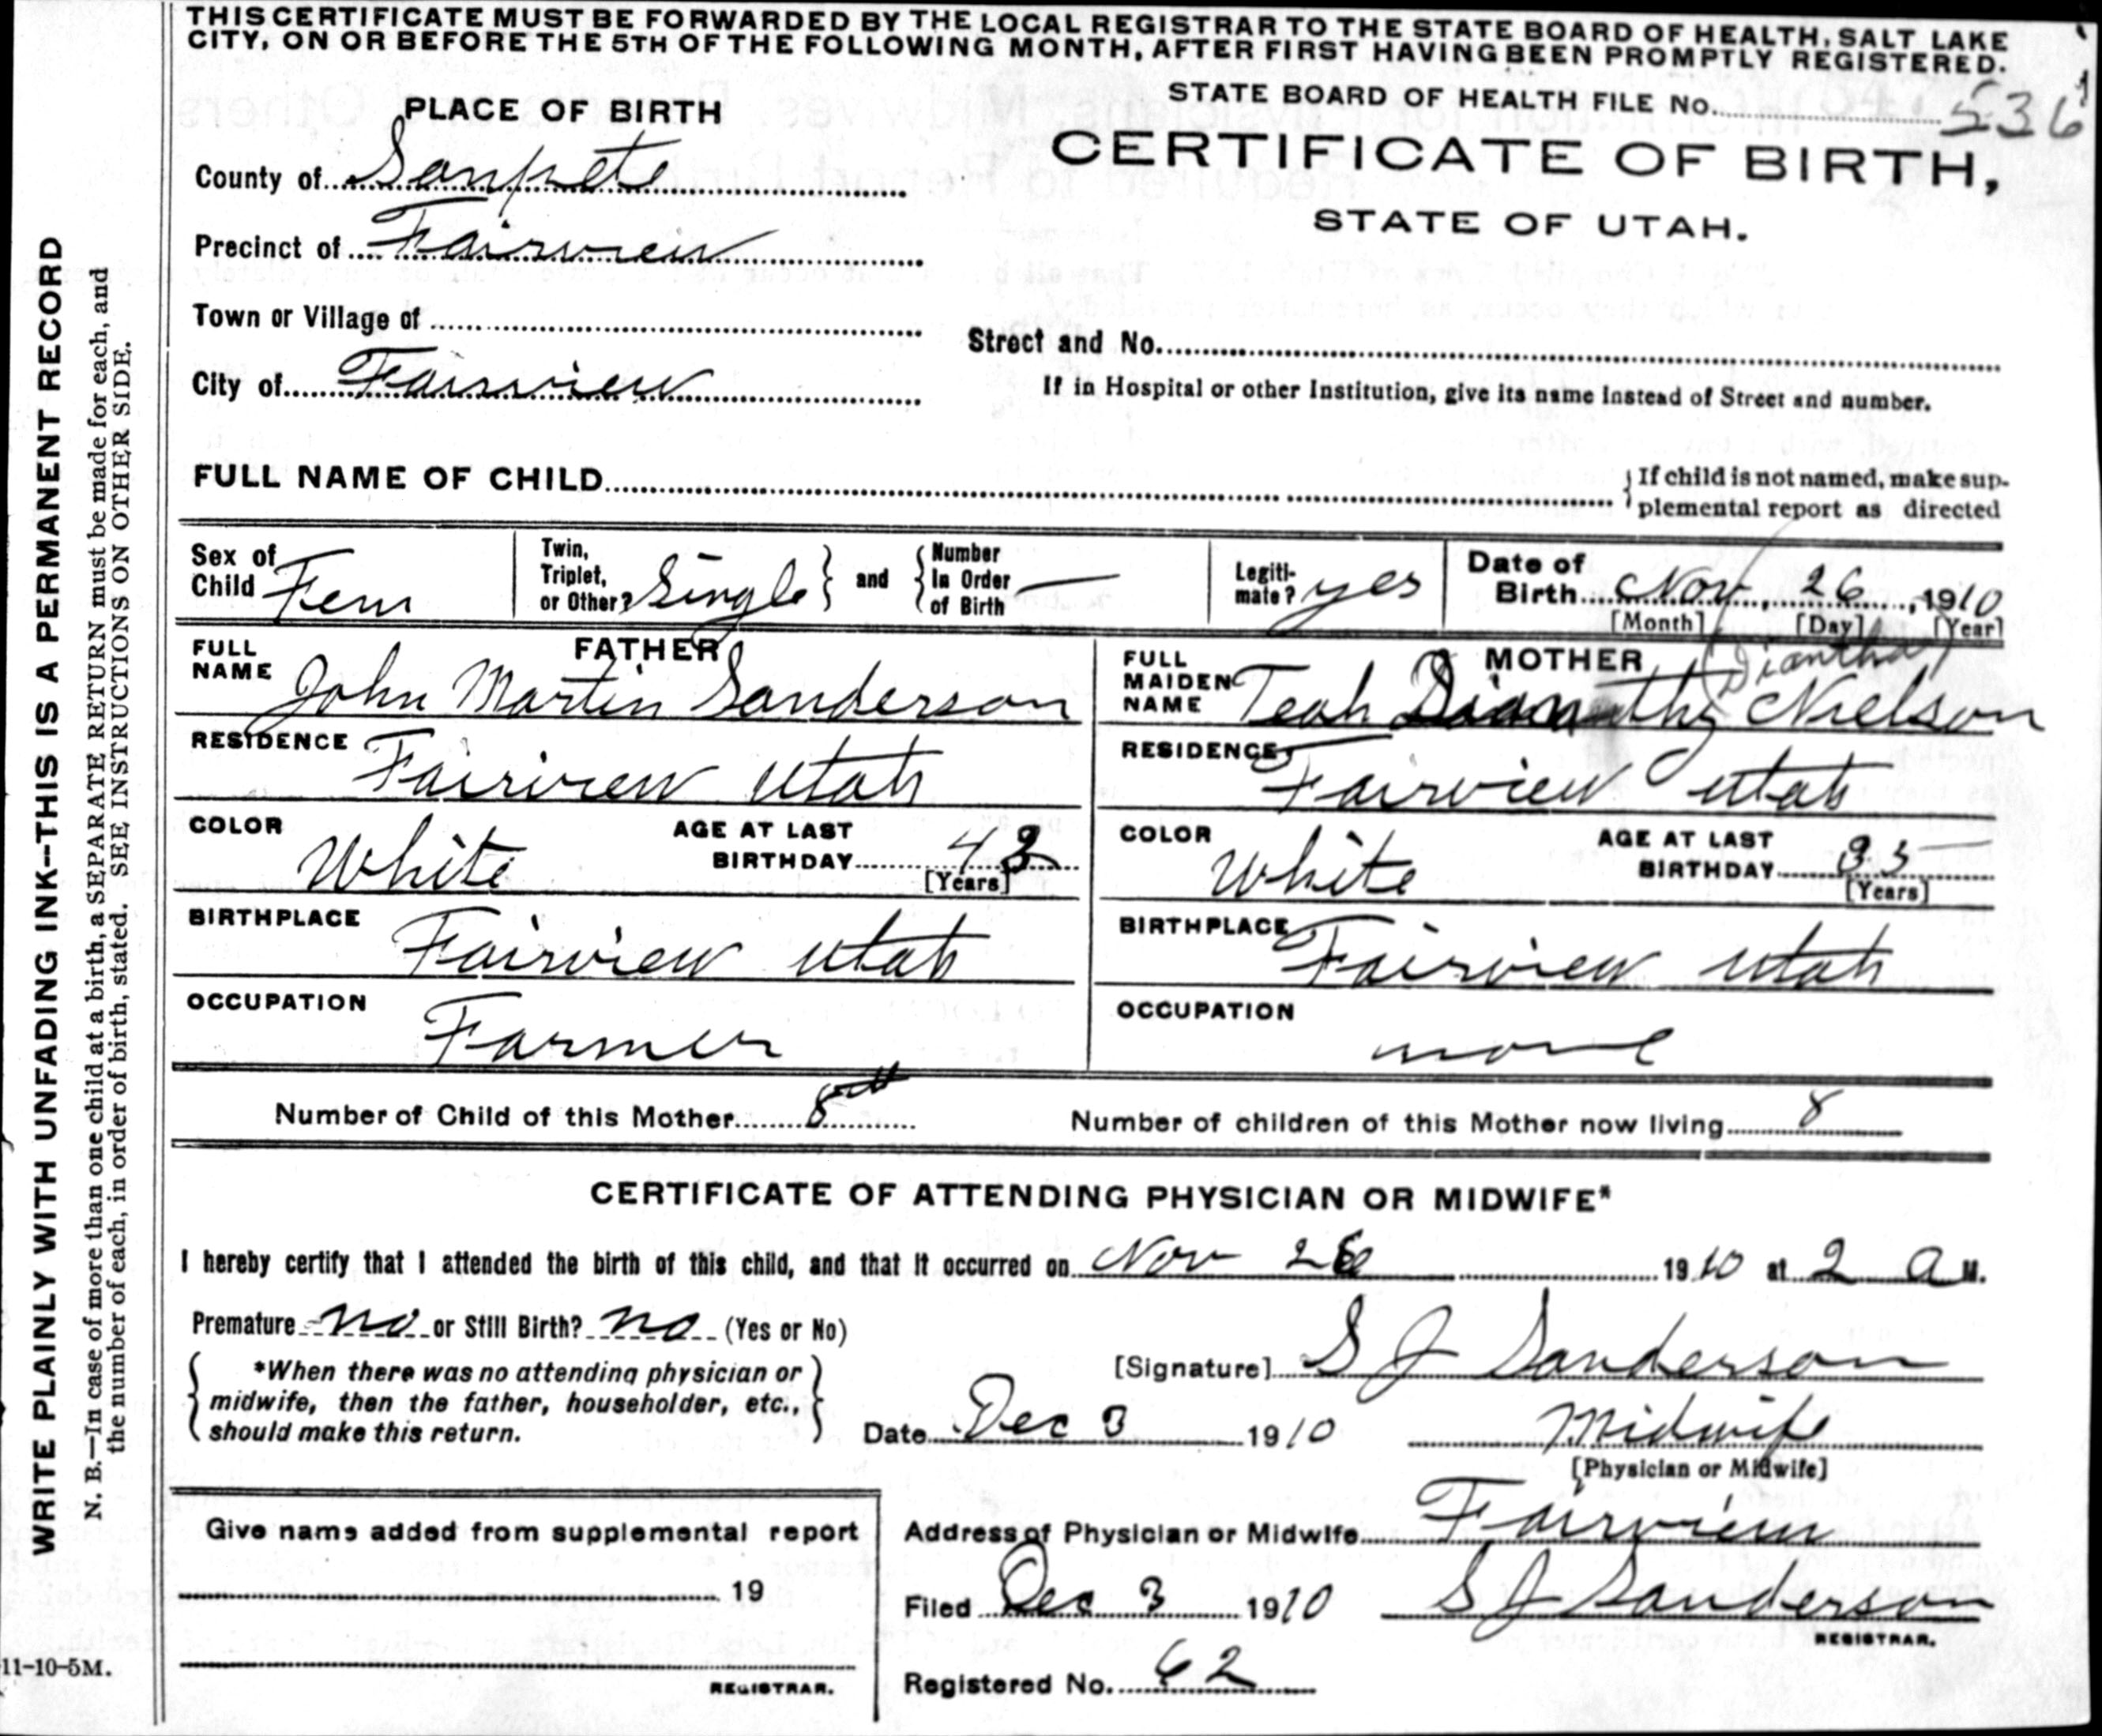 THIS CERTIFICATE MUST BE FORWARDED BY THE LOCAL REGISTRAR TO THE STATE BOARD OF HEALTH, SALT LAKE
CITY, ON OR BEFORE THE 5TH OF THE FOLLOWING MONTH, AFTER FIRST HAVING BEEN PROMPTLY REGISTERED.
STATE BOARD OF HEALTH FILE No. 536
PLACE OF BIRTH
CERTIFICATE OF BIRTH,
STATE OF UTAH.
County of Sanpete
Precinct of Fairview
Town or Village of
Street and No.
City of Fairview
If in Hospital or other Institution, give its name Instead of Street and number.
FULL NAME OF CHILD
If child is not named, make sup-
plemental report as directed
Sex of Child Fem
Twin, Triplet, or Other? Single and Number In Order of Birth —
Legiti-mate? yes
Date of Birth Nov, 26, 1910
[Month] [Day] [Year]
FATHER
FULL NAME John Martin Sanderson
RESIDENCE Fairview Utah
COLOR White AGE AT LAST BIRTHDAY 43
[Years]
BIRTHPLACE Fairview Utah
OCCUPATION Farmer
MOTHER (Diantha)
FULL MAIDEN NAME Teah Nielson
RESIDENCE Fairview Utah
COLOR White AGE AT LAST BIRTHDAY 35
[Years]
BIRTHPLACE Fairview Utah
OCCUPATION none
Number of Child of this Mother 8th
Number of children of this Mother now living 8
CERTIFICATE OF ATTENDING PHYSICIAN OR MIDWIFE*
I hereby certify that I attended the birth of this child, and that it occurred on Nov 26 1910 at 2 a M.
Premature no or Still Birth? no (Yes or No)
*When there was no attending physician or
midwife, then the father, householder, etc.,
should make this return.
[Signature] S J Sanderson
Date Dec 3 1910
Midwife
[Physician or Midwife]
Address of Physician or Midwife Fairview
Filed Dec 3 1910 S J Sanderson
REGISTRAR.
Registered No. 62
Give name added from supplemental report
19
REGISTRAR.
WRITE PLAINLY WITH UNFADING INK--THIS IS A PERMANENT RECORD
N. B.—In case of more than one child at a birth, a SEPARATE RETURN must be made for each, and
the number of each, in order of birth, stated. SEE INSTRUCTIONS ON OTHER SIDE.
11-10-5M.